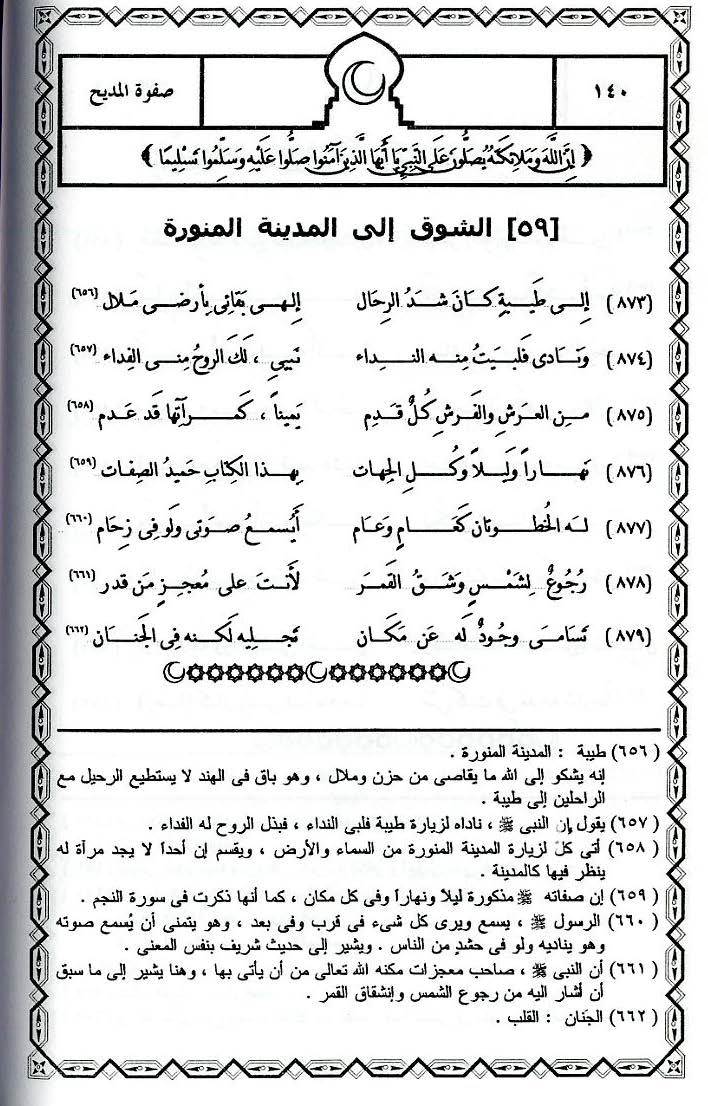 ١٤٠
صفوة المديح
﴿ إِنَّ اللَّهَ وَمَلَائِكَتَهُ يُصَلُّونَ عَلَى النَّبِيِّ يَا أَيُّهَا الَّذِينَ آمَنُوا صَلُّوا عَلَيْهِ وَسَلِّمُوا تَسْلِيمًا ﴾
[٥٩] الشوق إلى المدينة المنورة
(٨٧٣) إلى طَيبةٍ كانَ شدَ الرِحال إلهى بَقائى بأرضى مَلال (٦٥٦)
(٨٧٤) وَنادى فلبيتُ مِنه النداء نَبيي ، لَكَ الروحُ مِنى الفِداء (٦٥٧)
(٨٧٥) مِن العَرشِ والفَرشِ كُلٌ قَدِم يَميناً ، كَمرآتِها قَد عَدم (٦٥٨)
(٨٧٦) نَهاراً وَليلاً وكُلِ الجِهات بِهذا الكِتابِ حَميدُ الصِفات (٦٥٩)
(٨٧٧) لَه الخُطوتان كَعامٍ وَعام أَيُسمعُ صَوتى وَلو فى زِحام (٦٦٠)
(٨٧٨) رُجُوعٌ لِشَمْسٍ وَشَقُ القَمَر لأَنتَ على مُعجزٍ مَن قدر (٦٦١)
(٨٧٩) تَسَامى وجودٌ لَه عَن مَكان تَجليه لَكنه فى الجَنان (٦٦٢)
(٦٥٦) طيبة : المدينة المنورة .
إنه يشكو إلى الله ما يقاصى من حزن وملال ، وهو باق فى الهند لا يستطيع الرحيل مع
الراحلين إلى طيبة .
(٦٥٧) يقول إن النبى ﷺ ، ناداه لزيارة طيبة فلبى النداء ، فيذل الروح له الفداء .
(٦٥٨) أتى كلٌ لزيارة المدينة المنورة من السماء والأرض ، ويقسم إن أحداً لا يجد مرآة له
ينظر فيها كالمدينة .
(٦٥٩) إن صفاته ﷺ مذكورة ليلاً ونهاراً وفى كل مكان ، كما أنها ذكرت فى سورة النجم .
(٦٦٠) الرسول ﷺ ، يسمع ويرى كل شىء فى قرب وفى بعد ، وهو يتمنى أن يُسمع صوته
وهو يناديه ولو فى حشدٍ من الناس . ويشير إلى حديث شريف بنفس المعنى .
(٦٦١) أن النبى ﷺ ، صاحب معجزات مكنه الله تعالى من أن يأتى بها ، وهنا يشير إلى ما سبق
أن أشار اليه من رجوع الشمس وإنشقاق القمر .
(٦٦٢) الجَنان : القلب .